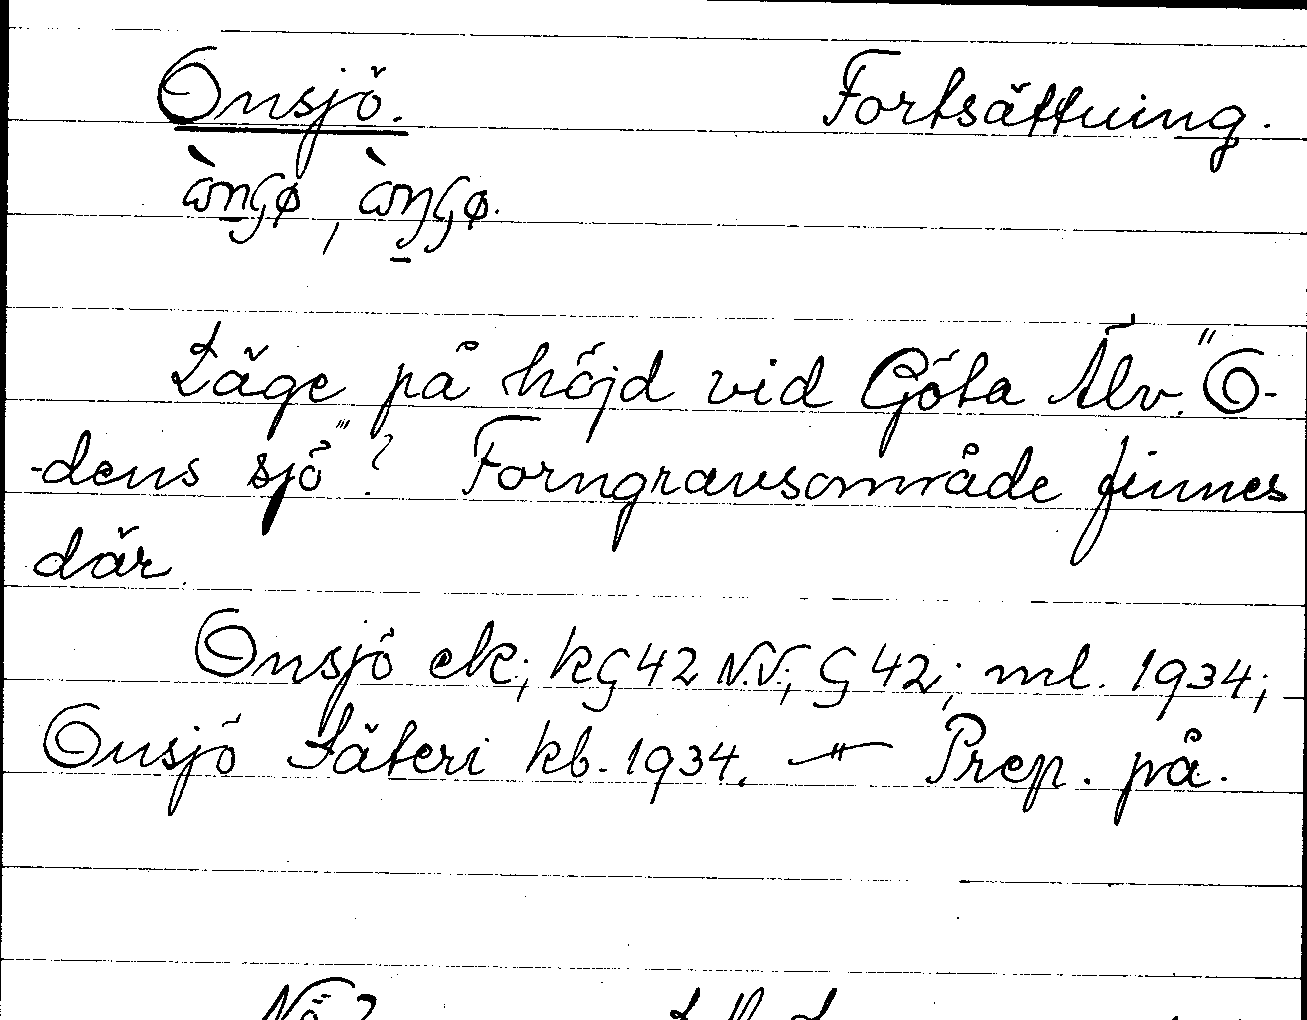 Onsjö. Fortsättning.
Läge på höjd vid Göta Älv. "O-
-dens sjö"? Forngravsområde finnes
där.
Onsjö ek; kG 42 N.V.; G 42; ml. 1934;
Onsjö Säteri kb. 1934. —"— Prep. på.